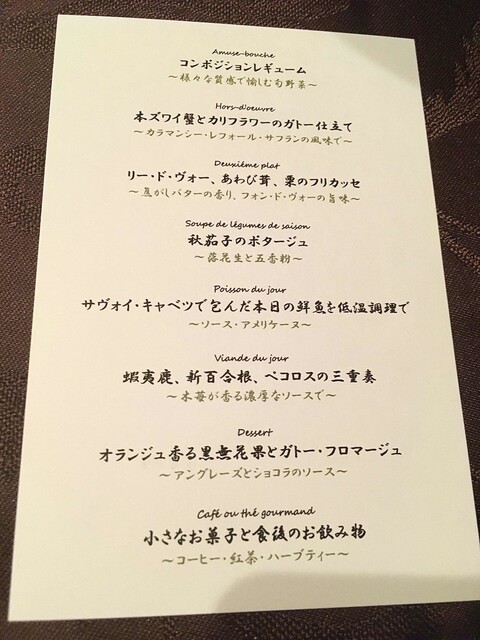 Amuse-bouche
コンポジションレギューム
～様々な質感で愉しむ旬野菜～
Hors-d'oeuvre
本ズワイ蟹とカリフラワーのガトー仕立て
～カラマンシー・レフォール・サフランの風味で～
Deuxième plat
リー・ド・ヴォー、あわび茸、栗のフリカッセ
～焦がしバターの香り、フォン・ド・ヴォーの旨味～
Soupe de légumes de saison
秋茄子のポタージュ
～落花生と五香粉～
Poisson du jour
サヴォイ・キャベツで包んだ本日の鮮魚を低温調理で
～ソース・アメリケーヌ～
Viande du jour
蝦夷鹿、新百合根、ペコロスの三重奏
～木苺が香る濃厚なソースで～
Dessert
オランジュ香る黒無花果とガトー・フロマージュ
～アングレーズとショコラのソース～
Café ou thé gourmand
小さなお菓子と食後のお飲み物
～コーヒー・紅茶・ハーブティー～